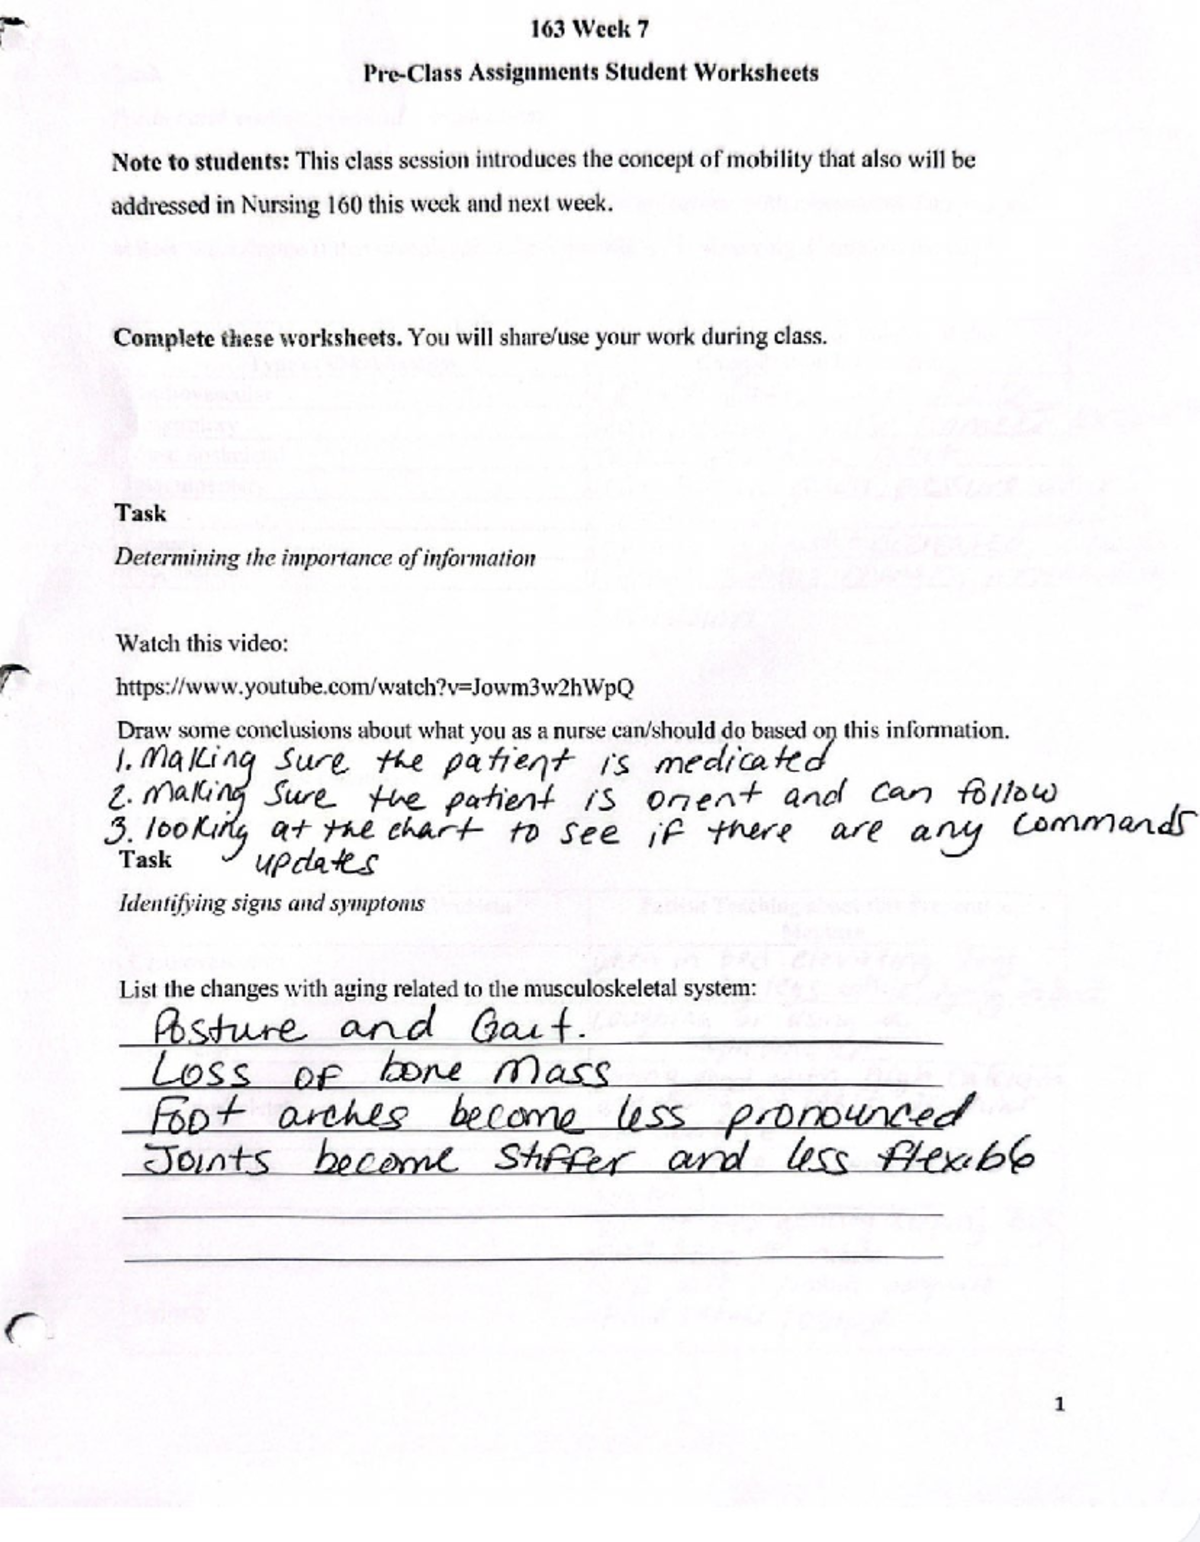 163 Week 7
Pre-Class Assignments Student Worksheets
Note to students: This class session introduces the concept of mobility that also will be
addressed in Nursing 160 this week and next week.
Complete these worksheets. You will share/use your work during class.
Task
Determining the importance of information
Watch this video:
https://www.youtube.com/watch?v=Jowm3w2hWpQ
Draw some conclusions about what you as a nurse can/should do based on this information.
1. Making sure the patient is medicated
2. making sure the patient is orient and can follow
3. looking at the chart to see if there are any commands
Task updates
Identifying signs and symptoms
List the changes with aging related to the musculoskeletal system:
Posture and Gait.
Loss of bone mass
Foot arches become less pronounced
Joints become stiffer and less flexible
1